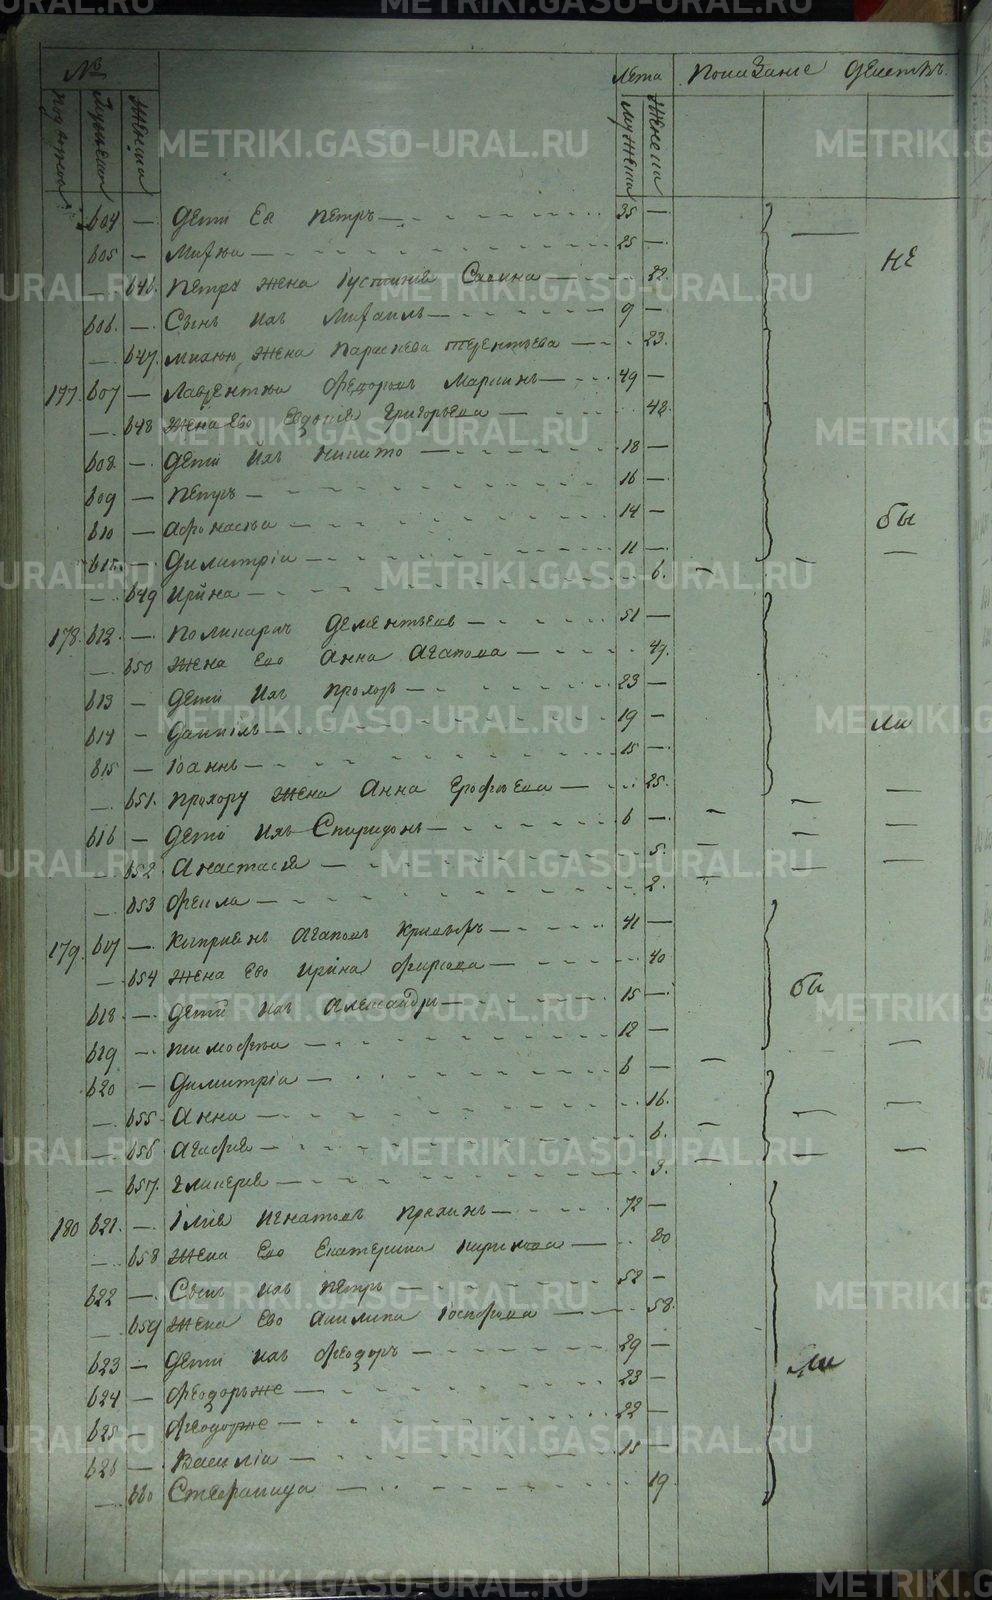 № Лета Показание действъ.
Мужеска Женска мужеска Женска
604 — дети Ея Петръ — 35 —
605 — Михѣи 25 —
— 646. Петра жена Иустинія Савина — 32.
606. — Сынъ ихъ Михаилъ — 9 —
— 647. Михѣю жена Параскева Терентьева — 23.
177. 607 — Лаврентѣи Федоровъ Маршинъ — 49 —
— 648 Жена Ево Евдокия Григорьева — 42.
608. — дети Ихъ Никито — 18 —
609 — Петръ — 16 —
610 — Афонасѣи — 14 —
611. — Димитріи — 11 —
— 649 Ирина — 6.
178. 612. — Поликарпъ Дементьевъ — 51 —
— 650 Жена Ево Анна Агапова — 47.
613 — дети Ихъ Прохоръ — 23 —
614 — Даниилъ — 19 —
615 — Іоаннъ — 15 —
— 651. Прохору Жена Анна Ерофѣева — 25.
616 — дети Ихъ Спиридонъ — 6 —
— 652 Анастасія — 5.
— 653 Фекла — 2.
179. 617 — Киприянъ Агаповъ — 41 —
— 654 Жена Ево Ирина Фирсова — 40
618. — дети ихъ Александръ — 15 —
619 — Тимофѣи — 12 —
620 — Димитріи — 6 —
— 655 Анна — 16.
— 656 Агафія — 6.
— 657. Гликерія — 3.
180 621. — Ілія Игнатовъ — 72 —
— 658 Жена Ево Екатерина Карпова — 80
622 — Сынъ ихъ Петръ — 52 —
— 659 Жена Ево Акилина Иосифова — 58.
623 — дети ихъ Феодоръ — 29 —
624 — Феодоръ же — 23 —
625 — Феодоръ же — 22 —
626 — Василіи — 15 —
— 660 Стефанида — 19.
не
бы
ли
бы
ли
METRIKI.GASO-URAL.RU